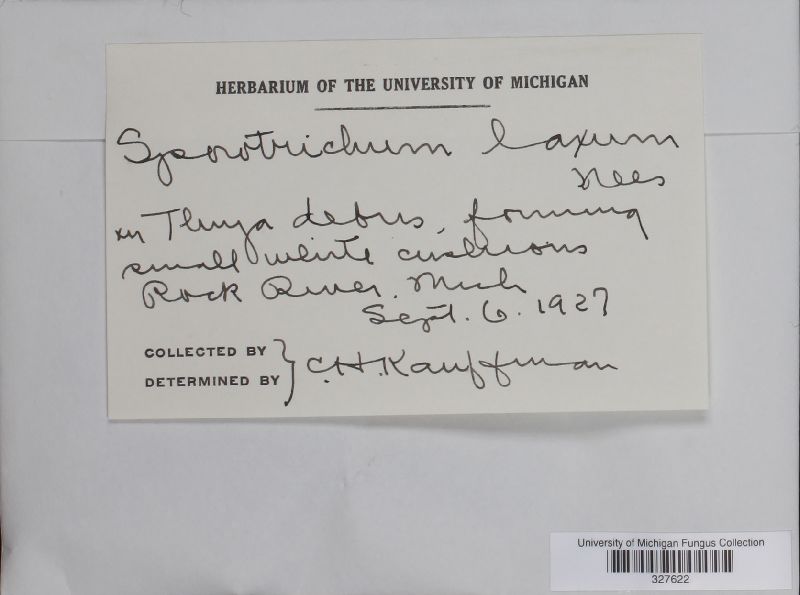 HERBARIUM OF THE UNIVERSITY OF MICHIGAN
Sporotrichum laxum
Nees
on Thuya debris, forming
small white cushions
Rock River, Mich
Sept. 6. 1927
COLLECTED BY
DETERMINED BY } C.H. Kauffman
University of Michigan Fungus Collection
327622